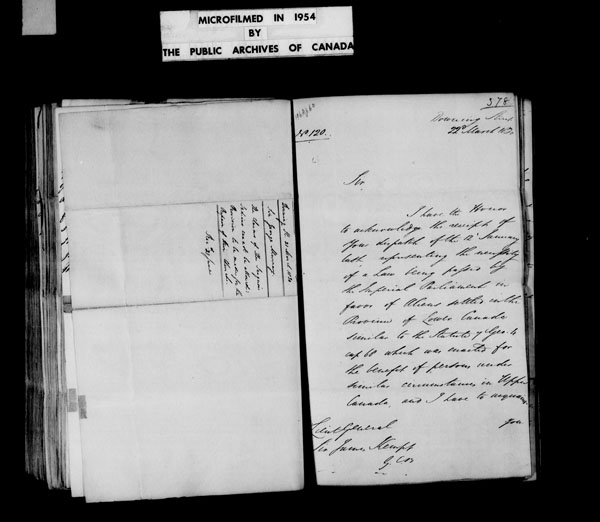 MICROFILMED IN 1954
BY
THE PUBLIC ARCHIVES OF CANADA
378
No 120.
Downing Street
22d March
Sir,
I have the Honor
to acknowledge the receipt of
your dispatch of the 12 January
last representing the necessity
of a Law being passed by
the Imperial Parliament in
favor of Aliens settled in the
Province of Lower Canada
similar to the Statute 7 Geo. 4
cap 68 which was enacted for
the benefit of persons under
similar circumstances in Upper
Canada, and I have to acquaint
you
Lieut General
Sir James Kempt
G.C.B.
Sir George Murray